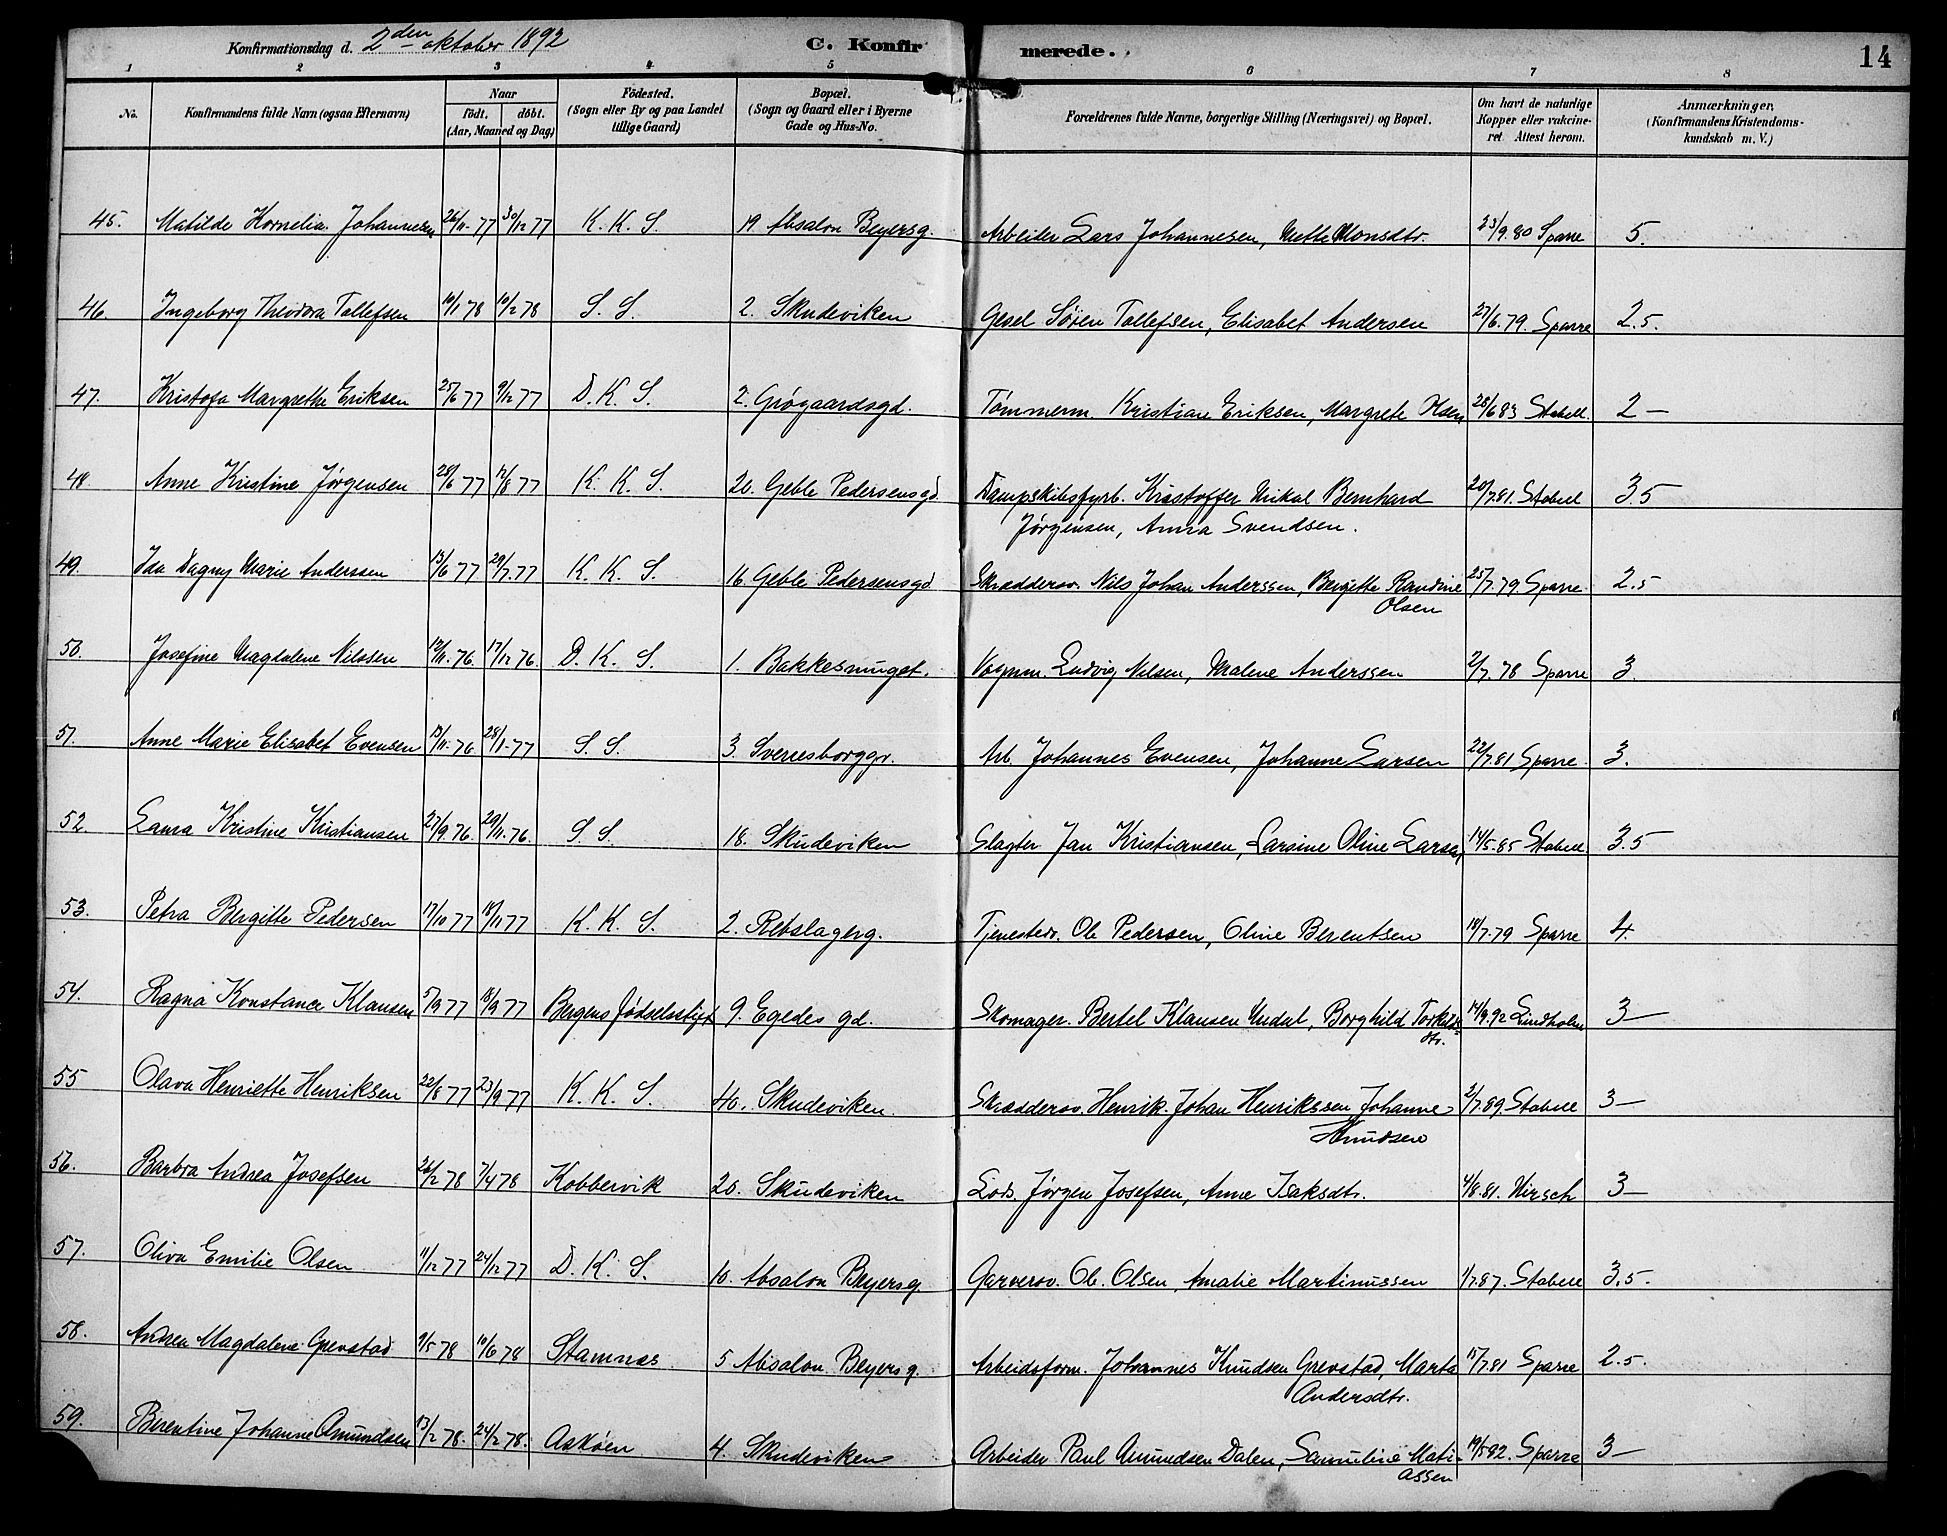 Konfirmationsdag d. 2den oktober 1892 C. Konfirmerede. 14
1 2 3 4 5 6 7 8
No. Konfirmandens fulde Navn (ogsaa Efternavn) Naar født. døbt. (Aar, Maaned og Dag) Fødested. (Sogn eller By og paa Landet tillige Gaard) Bopæl. (Sogn og Gaard eller i Byerne Gade og Hus-No. Forældrenes fulde Navne, borgerlige Stilling (Næringsvei) og Bopæl. Om havt de naturlige Kopper eller vakcineret. Attest herom. Anmærkninger, (Konfirmandens Kristendomskundskab m. V.)
45. Matilde Kornelia Johannesen 26/11 77 30/12 77 K. K. S. 19. Absalon Beyersg. Arbeider Lars Johannesen, Mette Monsdtr. 23/9. 80 Sparre 5.
46. Ingeborg Theodora Tollefsen 10/1 78 10/2 78 S. S. 2. Skudeviken Gesel Søren Tollefsen, Elisabet Andersen 27/6. 79. Sparre 2.5.
47. Kristofa Margrethe Eriksen 25/6 77 9/12 77 D. K. S. 2. Grøgaardsgd. Tømmerm. Kristian Eriksen, Margrete Olsen 28/6 83 Stabell. 2 —
48. Anne Kristine Jørgensen 28/6 77 12/8 77 K. K. S. 20. Geble Pedersensgd Dampskibsfyrb. Kristoffer Mikal Bernhard
Jørgensen, Anna Svendsen. 20/7. 81. Stabell 3.5
49. Ida Dagny Marie Anderssen 13/6 77 29/7. 77 K. K. S. 16. Geble Pedersensgd Skræddersv. Nils Johan Anderssen, Bergitte Randine
Olsen 25/7. 79. Sparre. 2.5
50. Josefine Magdalene Nilssen 12/11. 76. 17/12 76. D. K. S. 1. Bakkesmuget. Vognm. Ludvig Nilsen, Malene Anderssen 2/7. 78 Sparre 3.
51. Anne Marie Elisabet Evensen 13/11. 76. 28/1. 77 S. S. 3. Sverresborggr. Arb. Johannes Evensen, Johanne Larsen 22/7. 81 Sparre. 3.
52. Laura Kristine Kristiansen 27/9. 76. 29/11. 76. S. S. 18. Skudeviken Slagter Jan Kristiansen, Larsine Oline Larsen, 14/5. 85 Stabell. 3.5
53. Petra Bergitte Pedersen 17/10 77 18/11 77 K. K. S. 2. Rebslagerg. Tjenestedr. Ole Pedersen, Oline Berentsen 18/7. 79 Sparre 4.
54. Ragna Konstance Klausen 5/9 77 18/9 77 Bergens Fødselsstift 9. Egedes gd. Skomager. Bertel Klausen Undal, Borghild Torkilds-
dtr. 14/9. 92 Lindholm 3 —
55 Olava Henriette Henriksen 22/8 77 23/9 77 K. K. S. 40. Skudeviken. Skrædderov. Henrik Johan Henrikssen Johanne
Knudsen 2/7. 89. Stabell 3 —
56. Barbra Andrea Josefsen 26/2 78 7/4 78 Kobbervik 20. Skudeviken Lods. Jørgen Josefsen, Anne Isaksdtr. 4/8. 81. Hirsch 3 —
57. Oliva Emilie Olsen 11/12 77 24/12 77 D. K. S. 10. Absalon Beyersg. Garversv. Ole Olsen, Amalie Martinussen 1/7. 87. Stabell 3.5.
58. Andrea Magdalena Grevstad 9/5 78 10/6 78 Stamnæs. 5 Absalon Beyersg. Arbeidsform. Johannes Knudsen Grevstad, Marta
Andersdtr. 15/7. 81 Sparre 2.5.
59. Berentine Johanne Amundsen 13/2 78. 24/2 78. Askøen 4. Skudeviken Arbeider Paul Amundsen Dalen, Samueline Mati-
assen 19/5 82. Sparre 3 —